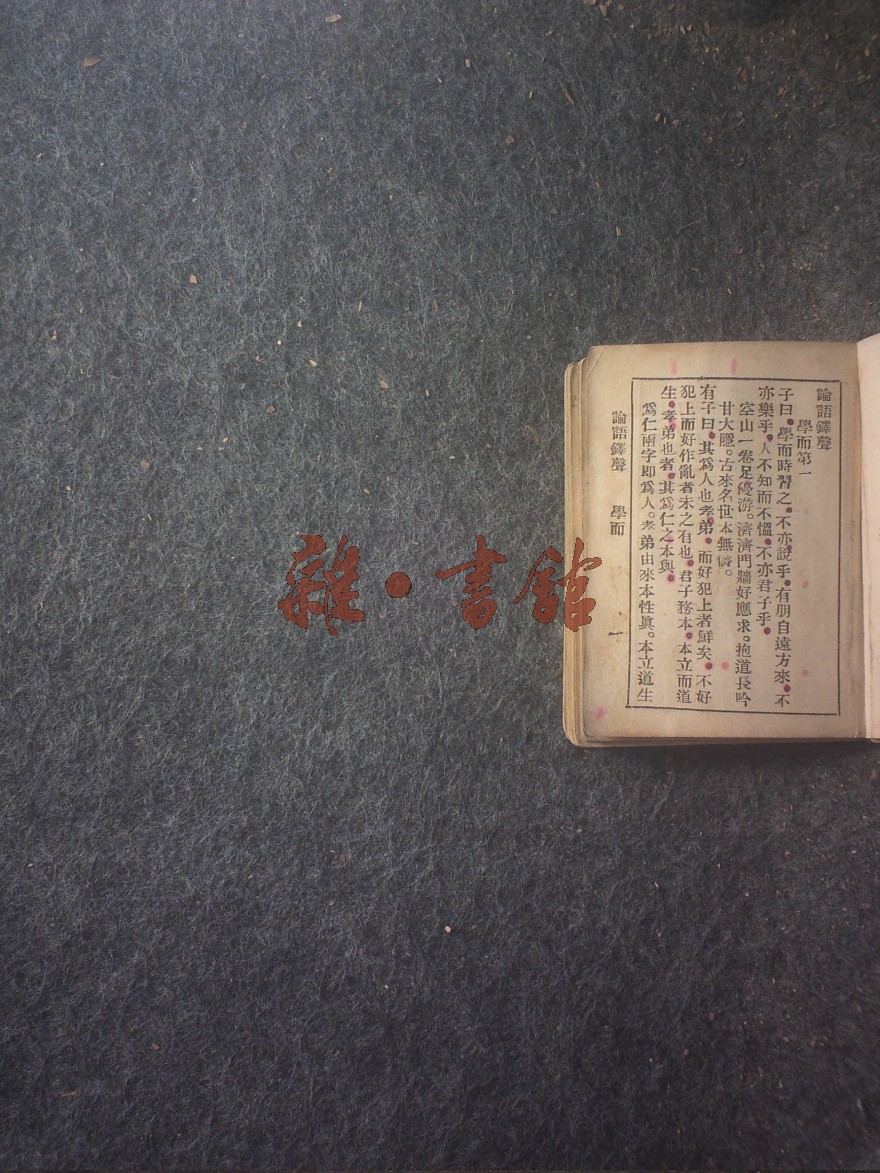 論語鐸聲
學而第一
子曰。學而時習之。不亦說乎。有朋自遠方來。不
亦樂乎。人不知而不慍。不亦君子乎。
空山一卷足優游。濟濟門牆好應求。抱道長吟
甘大隱。古來名世本無儔。
有子曰。其爲人也孝弟。而好犯上者鮮矣。不好
犯上而好作亂者未之有也。君子務本。本立而道
生。孝弟也者。其爲仁之本與。
爲仁兩字即爲人。孝弟由來本性眞。本立道生
論語鐸聲 學而 一
雜·書館